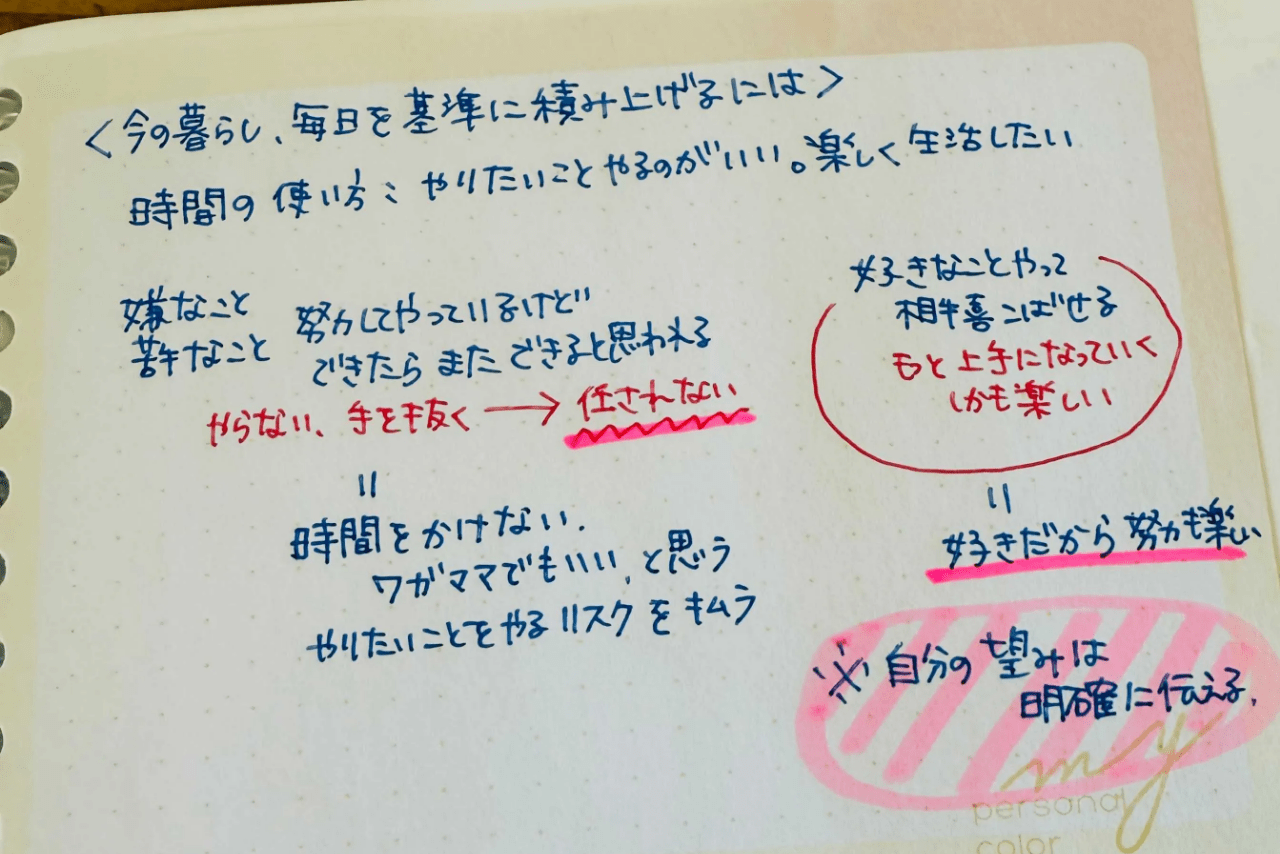 <今の暮らし、毎日を基準に積み上げるには>
時間の使い方: やりたいことやるのがいい。楽しく生活したい
嫌なこと
苦手なこと
努力してやっているけど
できたら また できると思われる
やらない、手を抜く → 任されない
=
時間をかけない.
ワガママでもいい、と思う
やりたいことをやるリスクを
好きなことやって
相手喜こばせる
もと上手になっていく
しかも楽しい
=
好きだから努力も楽しい
※ 自分の望みは
明確に伝える.
my
personal
color